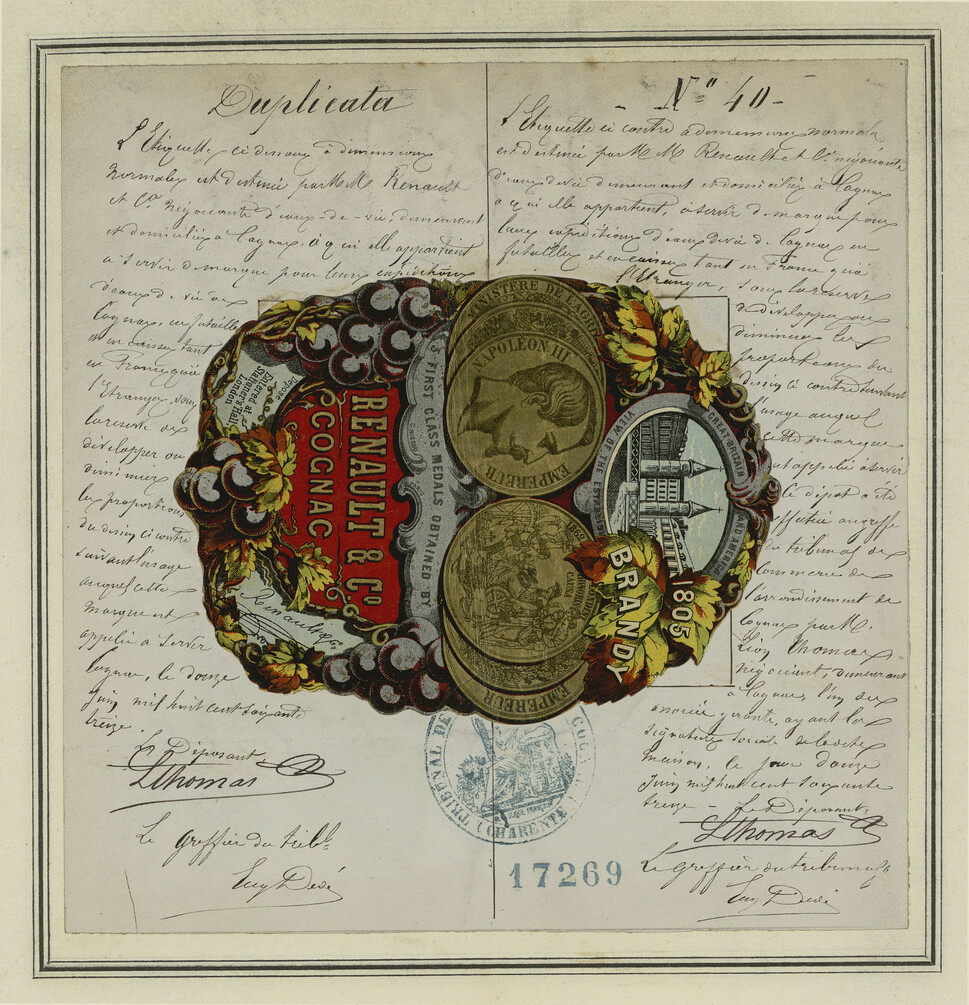 Duplicata
L'Etiquette ci dessous à dimensions
normales est destinée par M.M. Renault
et Cie négociants d'eaux-de-vie, demeurant
et domiciliés à Cognac, à qui elle appartient
à servir de marque pour leurs expéditions
d'eaux de vie de
Cognac, en futailles
et en caisses tant
en France qu'à
l'Etranger, sous
la réserve de
développer ou
diminuer
les proportions
du dessin ci contre
suivant l'usage
auquel cette
marque est
appelée à servir
Cognac, le douze
Juin mil huit cent soixante
treize.
Le Déposant
LThomas
Le greffier du tribl
Eug Dedé
No 40-
L'Etiquette ci contre à dimensions normales
est destinée par M.M. Renault et Cie négociants
d'eaux de vie demeurant et domiciliés à Cognac
à qui elle appartient, à servir de marque pour
leurs expéditions d'eaux de vie de Cognac en
futailles et en caisses tant en France qu'à
l'Etranger, sous la réserve
de développer ou
diminuer les
proportions du
dessin ci contre suivant
l'usage auquel
cette marque
est appelée à servir
Le dépôt a été
effectué au greffe
du tribunal de
Commerce de
l'arrondissement de
Cognac par M.
Léon Thomas
négociant, demeurant
à Cognac, l'un des
associés gérants, ayant la
signature sociale de la dite
maison, le jour douze
Juin mil huit cent soixante
treize - Le Déposant
LThomas
Le greffier du tribunal
Eug Dedé
Déposé
Entered at
Stationer's Hall
London
RENAULT & Co
COGNAC
Renault & Co
3 FIRST CLASS MEDALS OBTAINED BY
MINISTERE DE L'AGRI
NAPOLEON III
EMPEREUR
EMPEREUR
VIEW OF THE ESTABLISH
GREAT-BRITAIN AND AMERICA
1805
BRANDY
TRIBUNAL DE COGNAC
(CHARENTE)
17269